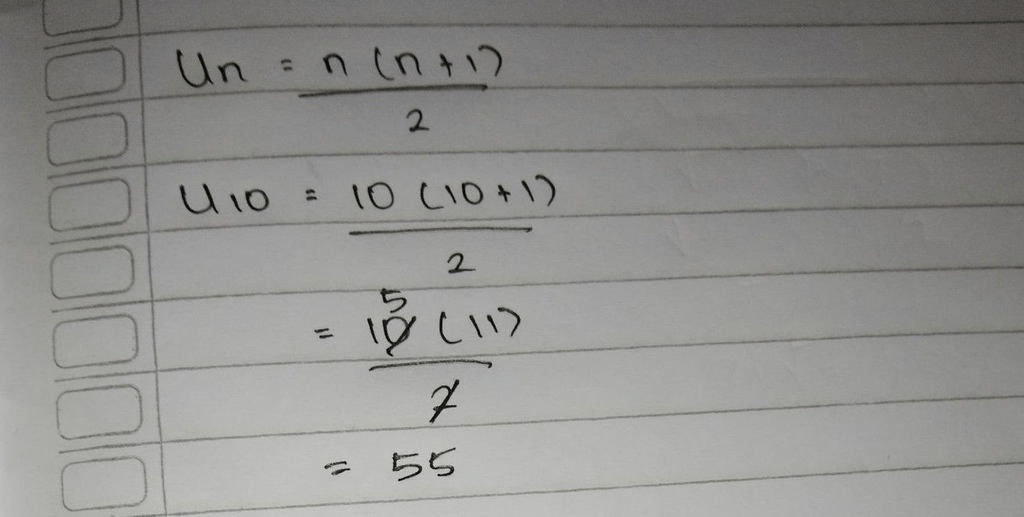 Un = n (n+1)
2
U10 = 10 (10+1)
2
5
= 10 (11)
2
= 55